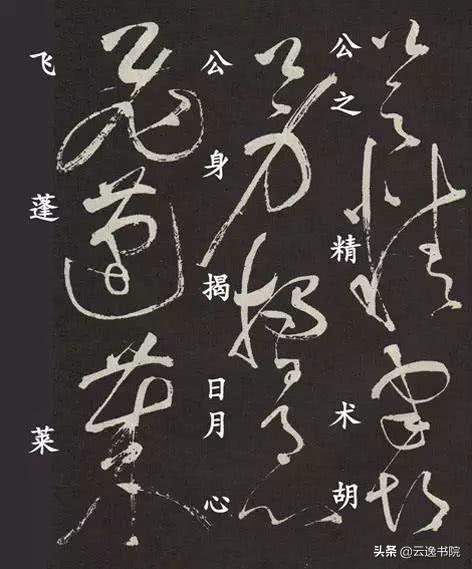 公之精术胡
公身揭日月心
飞蓬莱
头条 @云逸书院